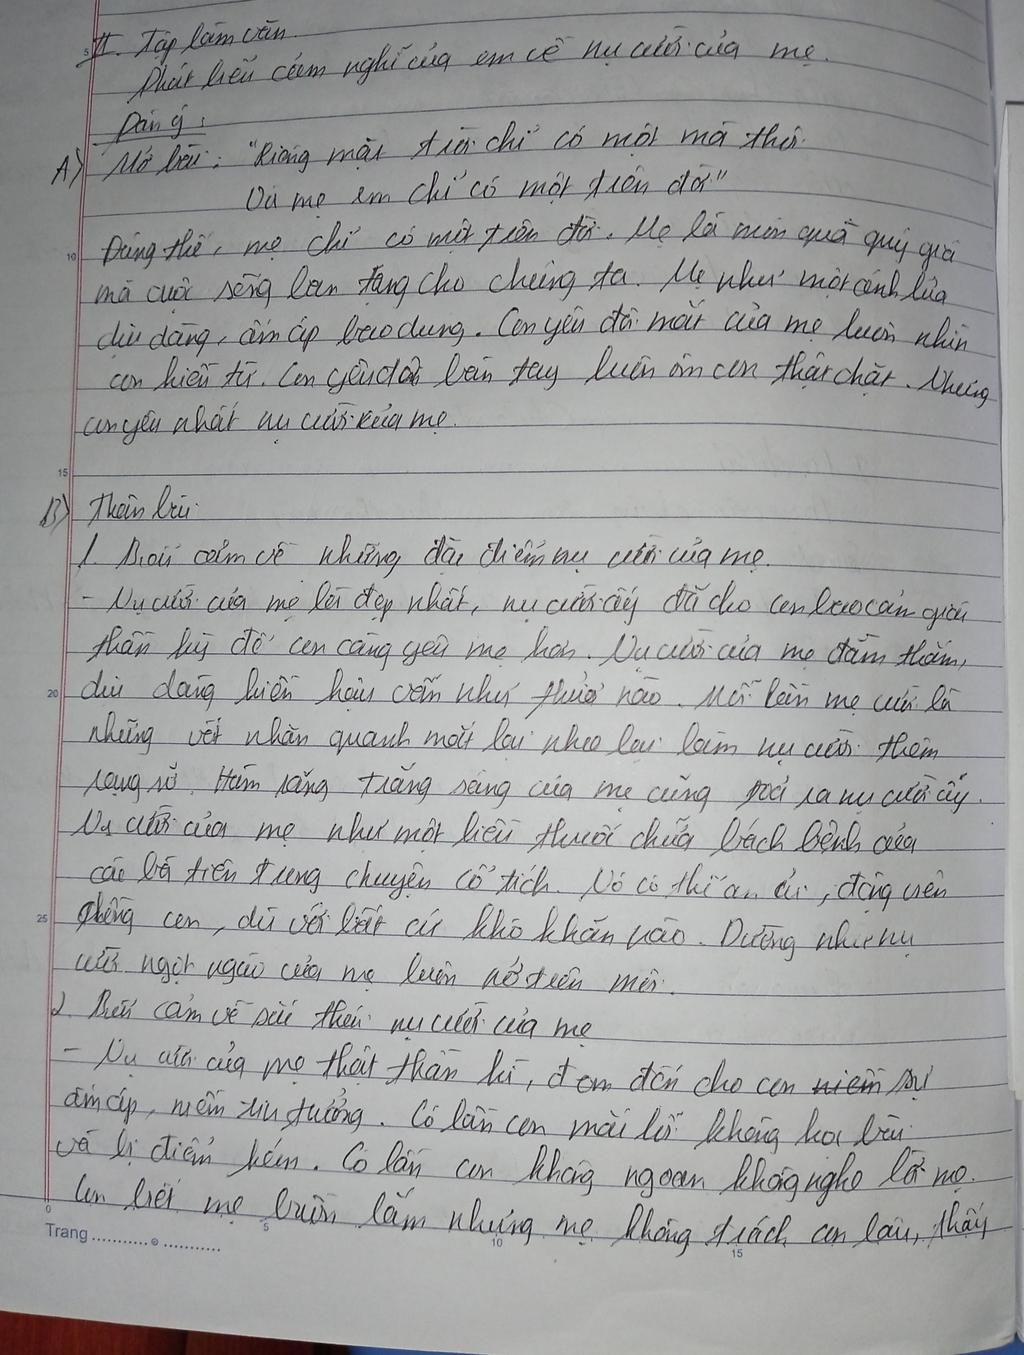 II. Tập làm văn
Phát biểu cảm nghĩ của em về nụ cười của mẹ.
Dàn ý:
A) Mở bài: "Riêng mặt trời chỉ có một mà thôi
Và mẹ em chỉ có một trên đời"
Đúng thế, mẹ chỉ có một trên đời. Mẹ là món quà quý giá
mà cuộc sống ban tặng cho chúng ta. Mẹ như một cánh lửa
dịu dàng, ấm áp bao dung. Con yêu đôi mắt của mẹ luôn nhìn
con hiền từ. Con yêu đôi bàn tay luôn ôm con thật chặt. Nhưng
con yêu nhất nụ cười của mẹ.
B) Thân bài
1. Biểu cảm về những đặc điểm nụ cười của mẹ.
- Nụ cười của mẹ là đẹp nhất, nụ cười ấy đã cho con bao cảm giác
thần kỳ để con càng yêu mẹ hơn. Nụ cười của mẹ đằm thắm,
dịu dàng hiền hậu vẫn như thuở nào. Mỗi lần mẹ cười là
những vết nhăn quanh mắt lại nheo lại làm nụ cười thêm
rạng rỡ. Hàm răng trắng sáng của mẹ cũng toả ra nụ cười ấy.
Nụ cười của mẹ như một liều thuốc chữa bách bệnh của
các bà tiên trong chuyện cổ tích. Nó có thể an ủi, động viên
con, dù với bất cứ khó khăn nào. Dường như nụ
cười ngọt ngào của mẹ luôn nở trên môi.
2. Biểu cảm về sắc thái nụ cười của mẹ
- Nụ cười của mẹ thật thần kì, đem đến cho con niềm sự
ấm áp, niềm tin tưởng. Có lần con mải lời không học bài
và bị điểm kém. Có lần con không ngoan không nghe lời mẹ.
Con biết mẹ buồn lắm nhưng mẹ không trách con lâu, thấy
Trang